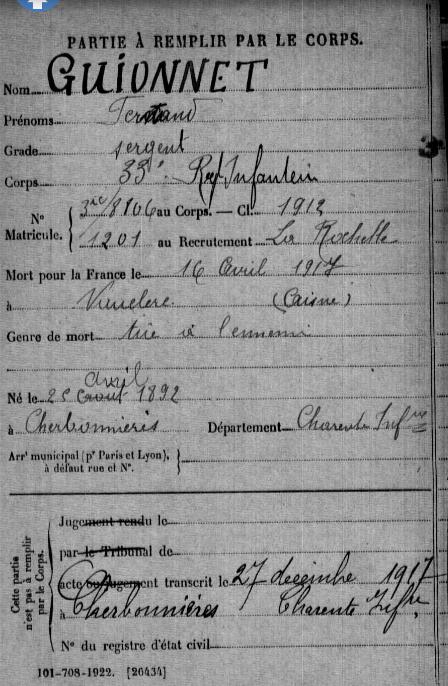 PARTIE À REMPLIR PAR LE CORPS.
Nom GUIONNET
Prénoms Fernand
Grade sergent
Corps 33e Regt Infanterie
N° Matricule. { 3ie/8106 au Corps. — Cl. 1912
1201 au Recrutement La Rochelle
Mort pour la France le 16 Avril 1917
à (Aisne)
Genre de mort tué à l'ennemi
avril
Né le août 1892
à Cherbonnières Département Charente Infre
Arrt municipal (pr Paris et Lyon), à défaut rue et N°. }
Cette partie n'est pas à remplir par le Corps. {
Jugement rendu le
par le Tribunal de
acte ou jugement transcrit le 27 decembre 1917
à Cherbonnières Charente Infre
N° du registre d'état civil
101-708-1922. [26434]